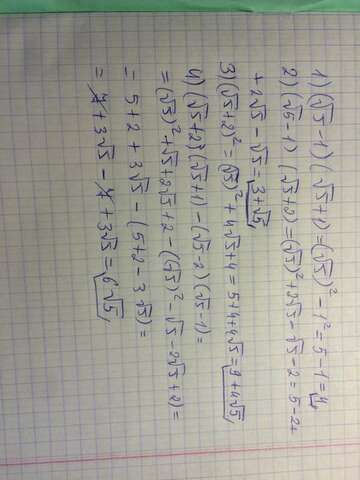 1) (√5-1)(√5+1)=(√5)²-1²=5-1=4
2) (√5-1)(√5+2)=(√5)²+2√5-√5-2=5-2+
+2√5-√5=3+√5
3) (√5+2)²=(√5)²+4√5+4=5+4+4√5=9+4√5
4) (√5+2)(√5+1)-(√5-2)(√5-1)=
=(√5)²+√5+2√5+2-((√5)²-√5-2√5+2)=
=5+2+3√5-(5+2-3√5)=
=7+3√5-7+3√5=6√5